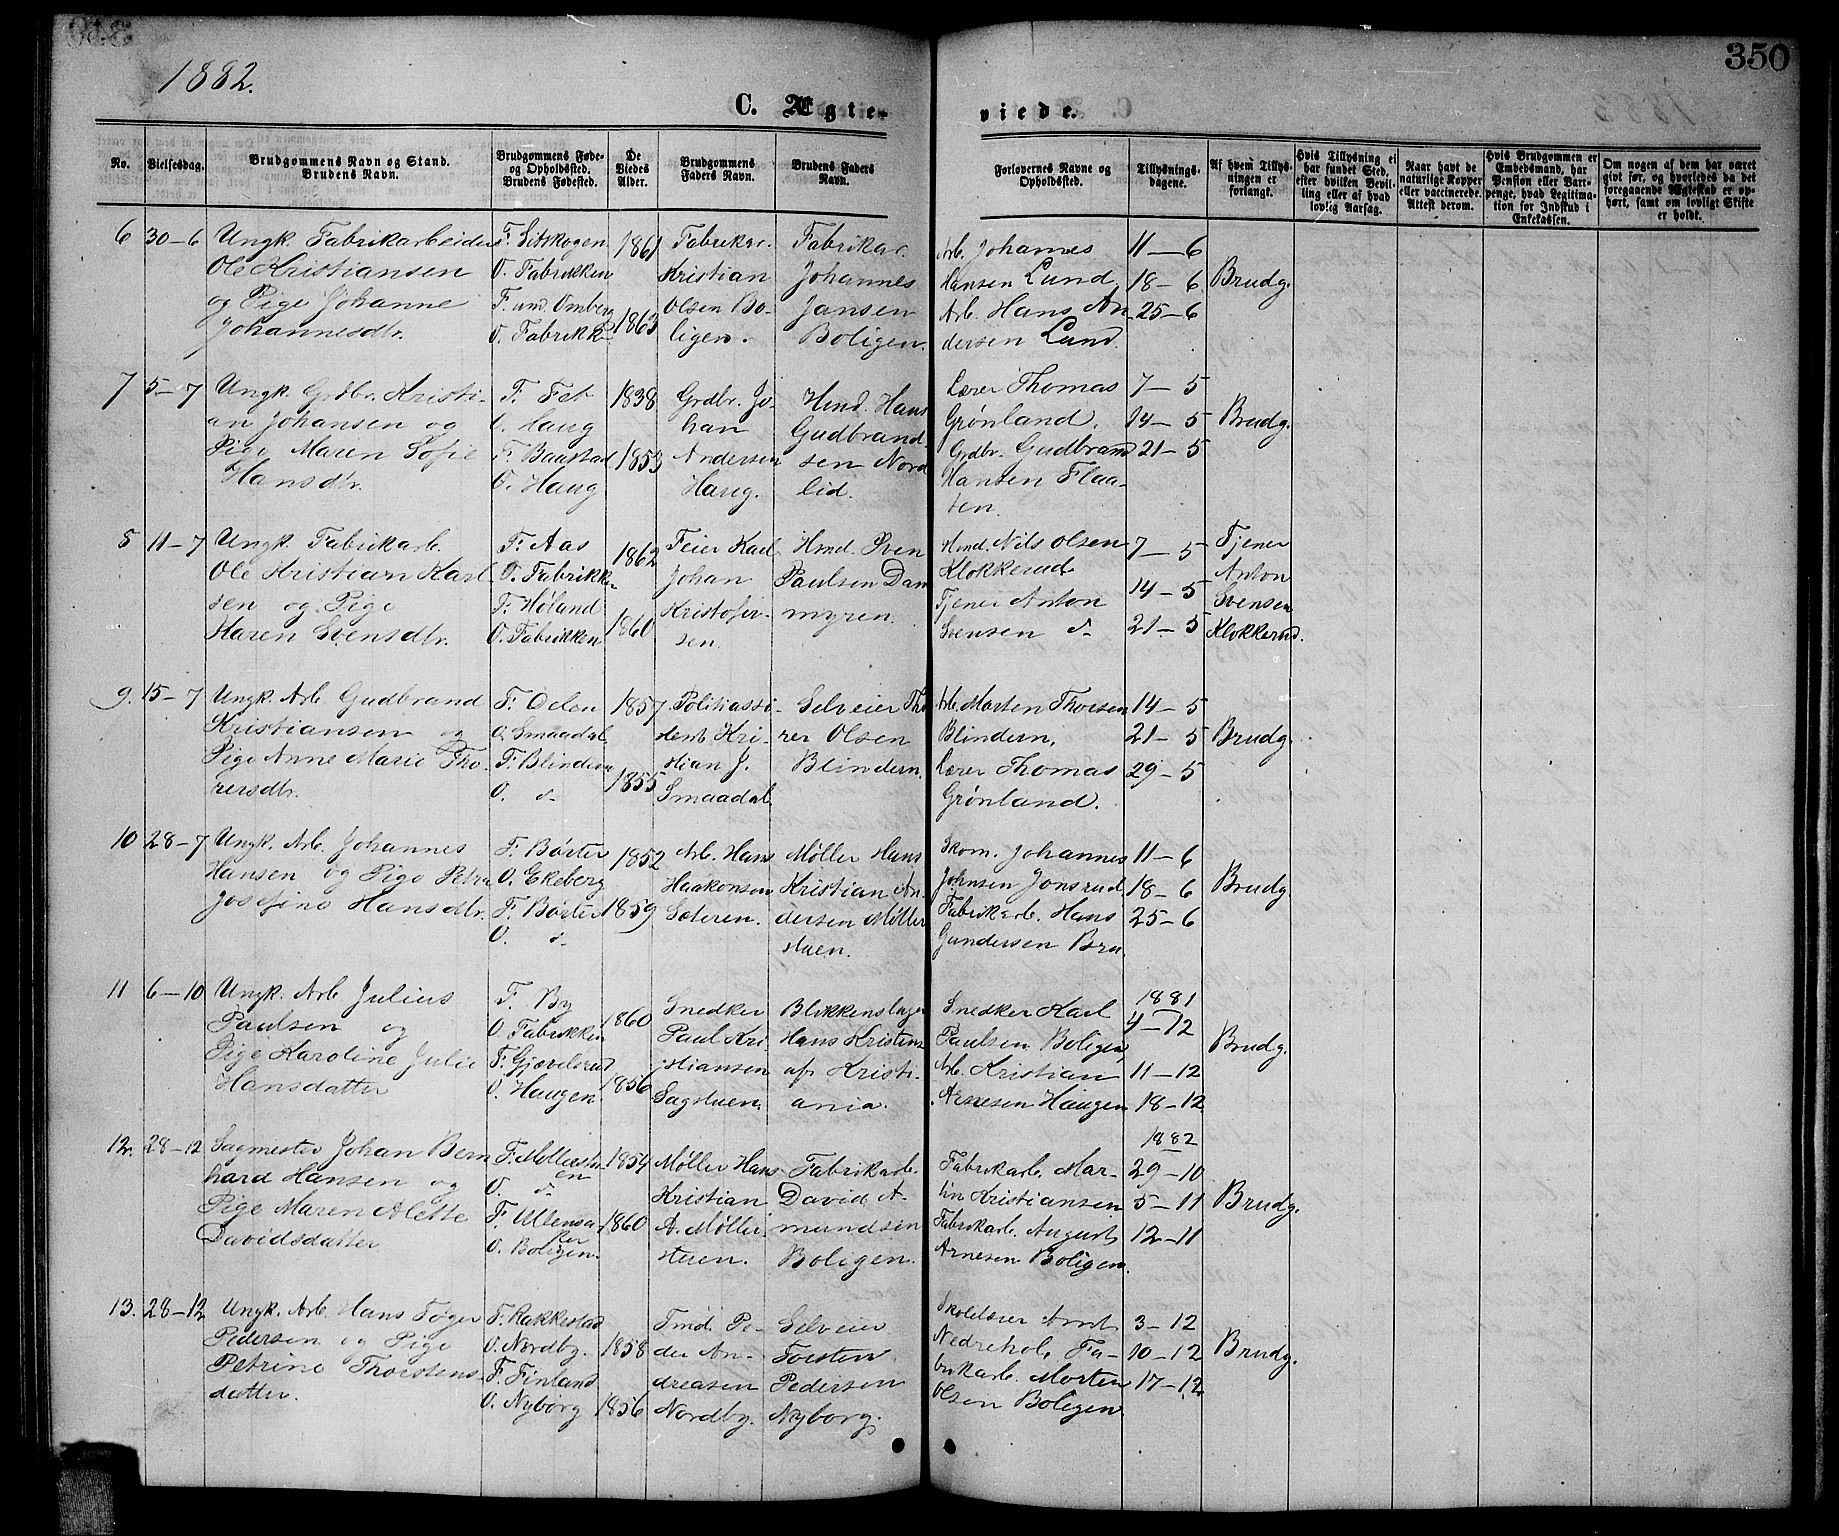 350
1882.
C. Ægte-
viede.
No.
Vielsesdag.
Brudgommens Navn og Stand.
Brudens Navn.
Brudgommens Føde-
og Opholdssted.
Brudens Fødested.
De
Viedes
Alder.
Brudgommens
Faders Navn.
Brudens Faders
Navn.
Forlovernes Navne og
Opholdssted.
Tillysnings-
dagene.
Af hvem Tillys-
ningen er
forlangt.
Hvis Tillysning ei
har fundet Sted,
efter hvilken Bevil-
ling eller af hvad
lovlig Aarsag.
Naar havt de
naturlige Kopper
eller vaccinerede.
Attest derom.
Hvis Brudgommen er
Embedsmand, har
Pension eller Vart-
penge, hvad Legitima-
tion for Indskud i
Enkekassen.
Om nogen af dem har været
givt før, og hvorledes da det
foregaaende Ægteskab er op-
hørt, samt om lovligt Skifte
er holdt.
6
30-6
Ungk. Fabrikarbeider
Ole Kristiansen
og Pige Johanne
Johannesdtr.
F. Sitskogen
O. Fabrikken
F. und. Omberg
O. Fabrikk
1861
1863
Fabrikar.
Kristian
Olsen Bo-
ligen.
Fabrikar.
Johannes
Jansen
Boligen.
Arb. Johannes
Hansen Lund
Arb. Hans An
dersen Lund.
11-6
18-6
25-6
Brudg.
7
5-7
Ungk. Grdbr. Kristi-
an Johansen og
Pige Maren Sofie
Hansdtr.
F. Fet
O. Haug
F. Baastad
O. Haug
1838
1853
Grdbr. Jo-
han
Andersen
Haug.
Hmd. Hans
Gudbrand-
sen Nord
lid.
Lærer Thomas
Grønland.
Grdbr. Gudbrand
Hansen Flaa-
ten.
7-5
14-5
21-5
Brudg.
8
11-7
Ungk. Fabrikarb.
Ole Kristian Karl
sen og Pige
Karen Svensdtr.
F. Aas
O. Fabrikk
F. Høland
O. Fabrikken
1862
1860
Feier Karl
Johan
Kristofer-
sen.
Hmd. Sven
Paulsen Dam
myren.
Hmd. Nils Olsen
Klokkerud
Tjener Anton
Svensen d-
7-5
14-5
21-5
Tjener
Anton
Svensen
Klokkerud.
9.
15-7
Ungk. Arb. Gudbrand
Kristiansen og
Pige Anne Marie Tho-
rersdtr.
F. Dalen
O. Smaadal
F. Blindern
O. d-
1857
1855
Politiassi-
stent Kri-
stian J.
Smaadal
Selveier Tho
rer Olsen
Blindern.
Arb. Morten Thorsen
Blindern,
Lærer Thomas
Grønland.
14-5
21-5
29-5
Brudg.
10
28-7
Ungk. Arb. Johannes
Hansen og Pige Petra
Josefine Hansdtr.
F. Børter
O. Ekeberg
F. Børter
O. d-
1852
1859
Arb. Hans
Haakonsen
Sæteren.
Møller Hans
Kristian An
dersen Møller
stuen.
Skom. Johannes
Johnsen Jonsrud
Fabrikarb. Hans
Gundersen Bra.
11-6
18-6
25-6
Brudg.
11
6-10
Ungk. Arb. Julius
Paulsen og
Pige Karoline Julie
Hansdatter
F. By
O. Fabrikken
F. Gjævelsrud
O. Haugen
1860
1856
Snedker
Paul Kri
stiansen
Sagstuen.
Blikkenslager
Hans Kristens.
af Kristi-
ania.
Snedker Karl
Paulsen Boligen,
Arb. Kristian
Arnesen Haugen
1881
4-12
11-12
18-12
Brudg.
12.
28-12
Sagmester Johan Bern
hard Hansen og
Pige Maren Alette
Davidsdatter
F. Møllerstu
en
O. d-
F. Ullensa
ker
O. Boligen.
1854
1860
Møller Hans
Kristian
A. Møller-
stuen.
Fabrikarb.
David A-
mundsen
Boligen.
Fabrikarb. Mar-
tin Kristiansen
Fabrikarb. August
Arnesen Boligen.
1882
29-10
5-11
12-11
Brudg.
13.
28-12
Ungk. Arb. Hans Tøger
Pedersen og Pige
Petrine Thorstens-
datter.
F. Rakkestad
O. Nordby.
F. Finland
O. Nyborg
1858
1856
Tmd. Pe-
der An-
dreasen
Nordby.
Selveier
Torsten
Pedersen
Nyborg.
Skolelærer Arnt
Nedrehol, Fa-
brikarb. Morten
Olsen Boligen
3-12
10-12
17-12
Brudg.